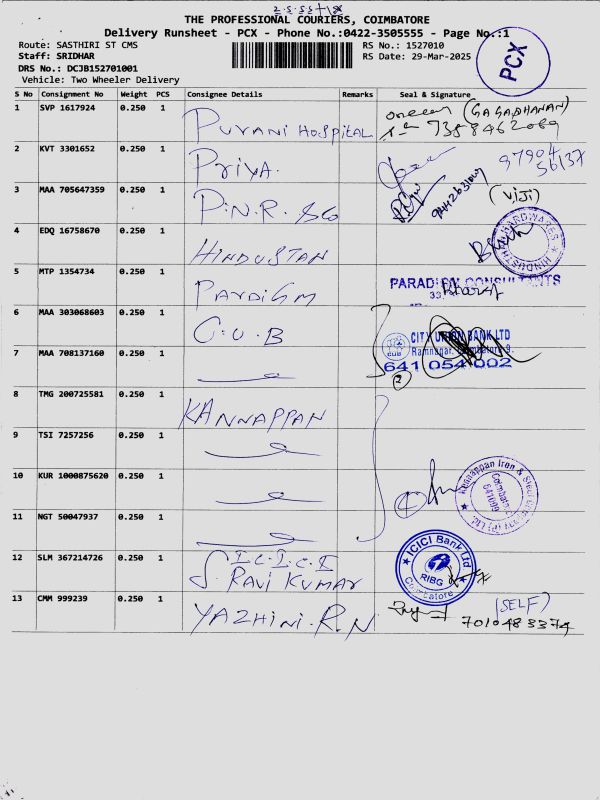 THE PROFESSIONAL COURIERS, COIMBATORE
Delivery Runsheet - PCX - Phone No.:0422-3505555 - Page No.:1
PCX
Route: SASTHIRI ST CMS
RS No.: 1527010
Staff: SRIDHAR
RS Date: 29-Mar-2025
DRS No.: DCJB152701001
Vehicle: Two Wheeler Delivery
S No Consignment No Weight PCS Consignee Details Remarks Seal & Signature
1 SVP 1617924 0.250 1 PURANI HOSPITAL (GAGADHANAN)
7358462089
2 KVT 3301652 0.250 1 PRIYA. 97904
56137
3 MAA 705647359 0.250 1 P.N.R. (VIJI)
4 EDQ 16758670 0.250 1 HINDUSTAN
HARDWARES HINDUSTHAN
5 MTP 1354734 0.250 1 PARDIGM CONSULTANTS
6 MAA 303068603 0.250 1 C.U.B CITY UNION BANK LTD
Ramnagar, Coimbatore-9.
7 MAA 708137160 0.250 1 641 054 002
2
8 TMG 200725581 0.250 1 KANNAPPAN
9 TSI 7257256 0.250 1
10 KUR 1000875620 0.250 1 Kannappan Iron & Steel Company (P) Ltd.
Coimbatore
11 NGT 50047937 0.250 1
12 SLM 367214726 0.250 1 I.C.I.C.I
S. RAVI KUMAR ICICI Bank Ltd
RIBG
Coimbatore
13 CMM 999239 0.250 1 YAZHINI.R.N (SELF)
7010483374